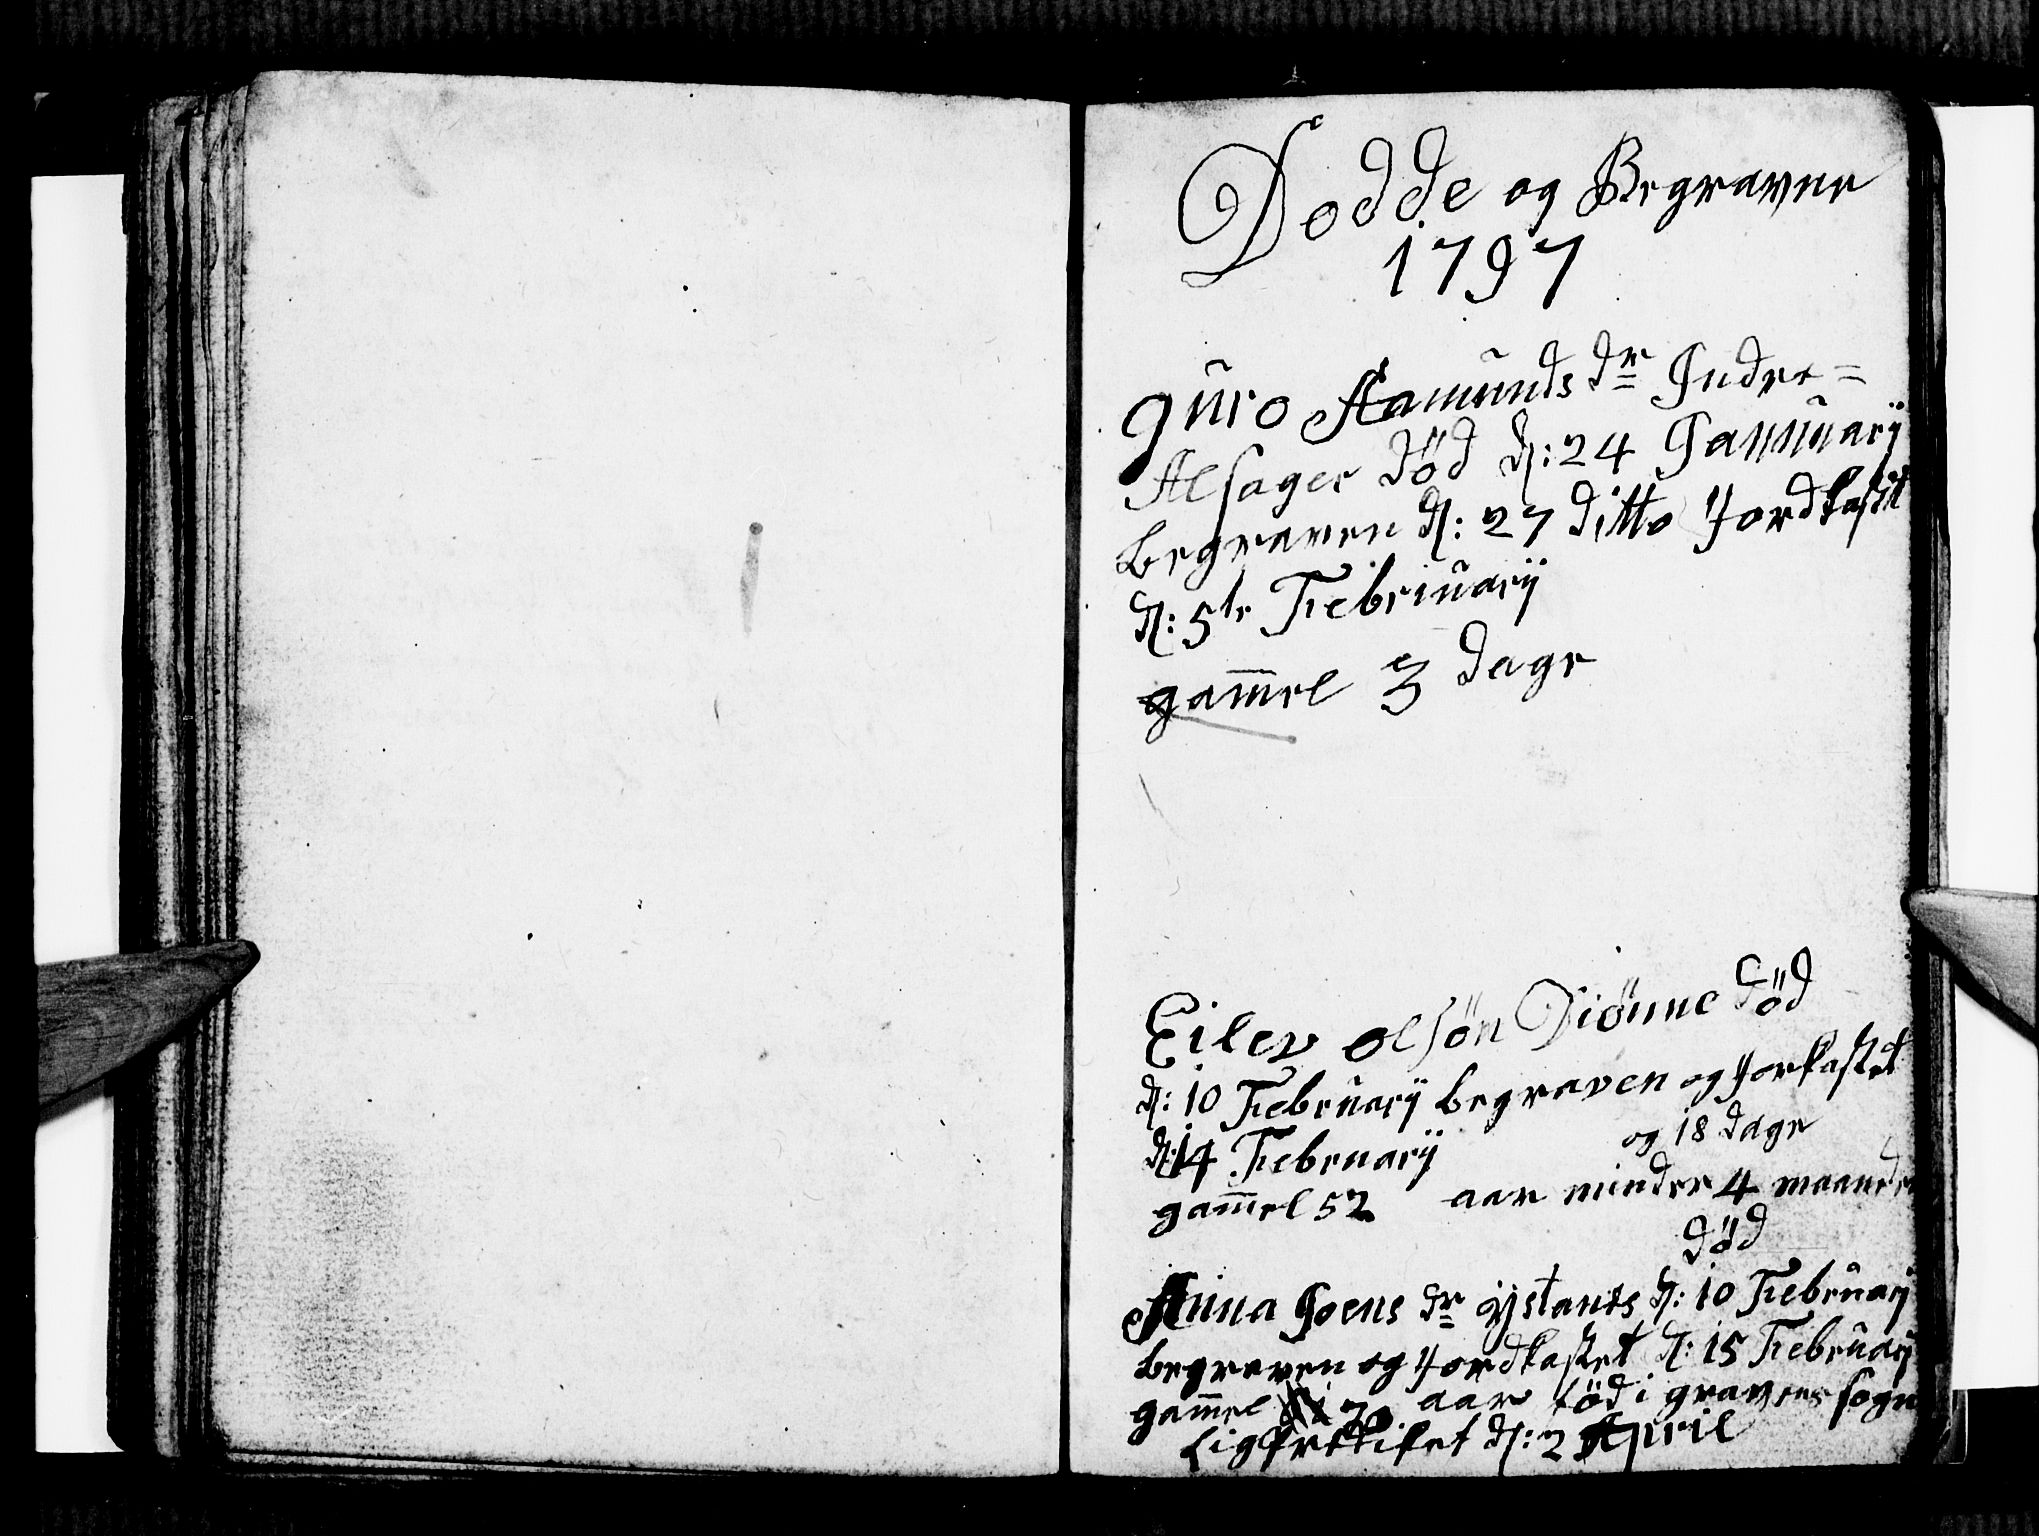 Dodde og Begravne
1797
guro Aamunds dr Indre=
Alsager död d: 24 Jannuarij
begraven d: 27 ditto Jordkastet
d: 5te Febriuarij
gam̅el 3 dage
Eilev olsön Diönne död
d: 10 Februarij begraven og Jorkastet
d: 14 Februarij
og 18 dage
gam̅el 52 aar minder 4 maander
död
Anna Joens dr d: 10 Februarij
begraven og Jordkastet d: 15 Februarij
gam̅el aar föd i gravens sogn
d: 2 April